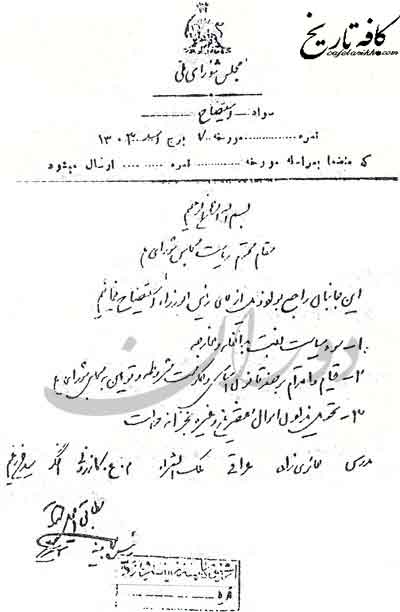 کافه تاریخ
cafetarikh.com
مجلس شورای ملی
سواد استیضاح
نمره ............ مورخه ۷ برج اسد ۱۳۰۳
که منضما بمراسله مورخه ............ نمره ............ ارسال میشود
بسم الله الرحمن الرحیم
مقام محترم ریاست مجلس شورای ملی
این جانبان راجع بمواد ذیل از آقای رئیس الوزراء استیضاح مینمائیم
۱- سوء سیاست نسبت بداخله و خارجه
۲- قیام و اقدام بر ضد قانون اساسی و حکومت مشروطه و توهین بمجلس شورای ملی
۳- تحویل ندادن اموال مقصرین و غیره بخزانه دولت
مدرس حائری زاده عراقی ملک الشعراء م.ع. کازرونی اخگر سید
دوران
رئیس کابینه